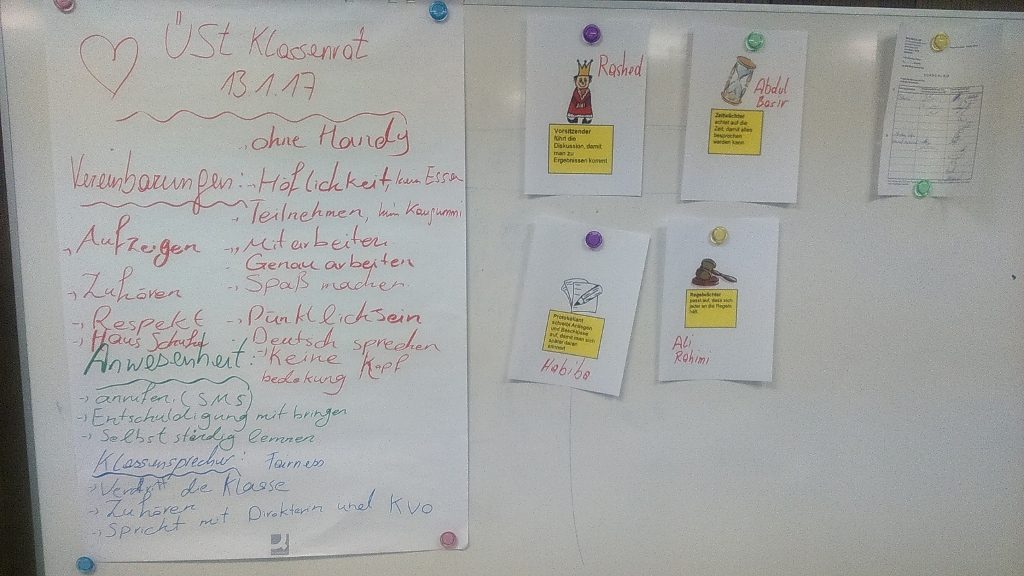 ÜSt Klassenrat
13.1.17
ohne Handy
Vereinbarungen: Höflichkeit, kein Essen
Teilnehmen, kein Kaugummi
Aufzeigen
Mitarbeiten
Genau arbeiten
Zuhören
Spaß machen
Respekt
Pünklichsein
Haus Schuhe
Deutsch sprechen
Anwesenheit:
Keine Kopf
bedekung
anrufen (SMS)
Entschuldigung mit bringen
Selbst ständig lernnen
Klassensprecher: Fairness
die Klasse
Zuhören
Spricht mit Direktorin und KVO
Rashed
Vorsitzender
führt die
Diskussion, damit
man zu
Ergebnissen kommt
Abdul
Basir
Zeitwächter
achtet auf die
Zeit, damit alles
besprochen
werden kann
Protokollant
schreibt Anliegen
und Beschlüsse
auf, damit man sich
später daran
erinnert
Habiba
Regelwächter
passt auf, dass sich
jeder an die Regeln
hält
Ali
Rahimi